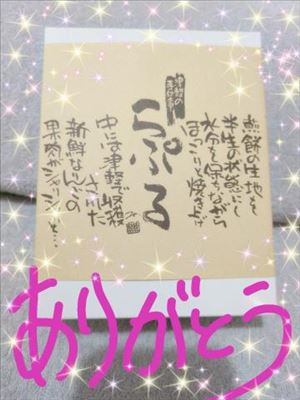 津軽の
らぷる
煎餅の生地を
半生の状態にし
水分を保ちながら
ほっこり焼き上げ
中には津軽で収穫
された
新鮮なりんごの
果肉がシャリシャリと…
ありがとう